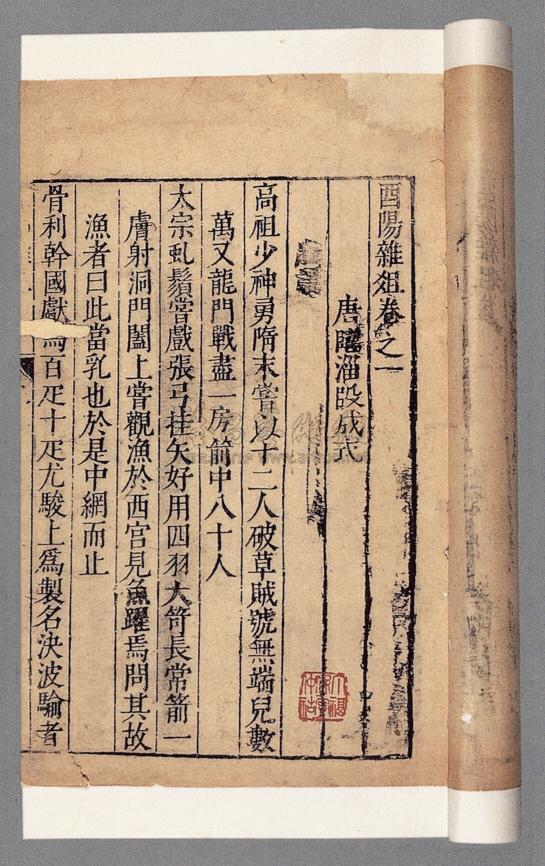 酉陽雜俎卷之一
唐臨淄段成式
高祖少神勇隋末嘗以十二人破草賊號無端兒數
萬又龍門戰盡一房箭中八十人
太宗虬鬚嘗戲張弓挂矢好用四羽大笴長常箭一
膚射洞門闔上嘗觀漁於西宮見魚躍焉問其故
漁者曰此當乳也於是中網而止
骨利幹國獻馬百疋十疋尤駿上爲製名決波騟者